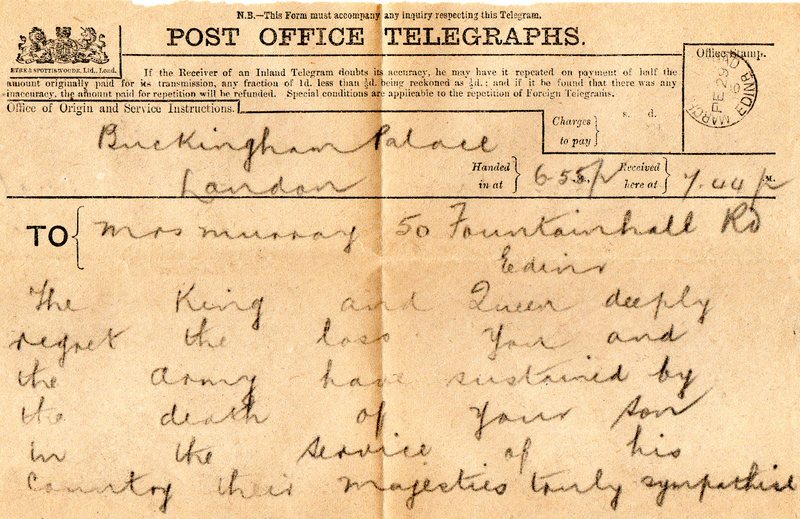 N.B.—This Form must accompany any inquiry respecting this Telegram.
POST OFFICE TELEGRAPHS.
EYRE & SPOTTISWOODE, Ltd., Lond.
If the Receiver of an Inland Telegram doubts its accuracy, he may have it repeated on payment of half the
amount originally paid for its transmission, any fraction of 1d. less than ½d. being reckoned as ½d.; and if it be found that there was any
inaccuracy, the amount paid for repetition will be refunded. Special conditions are applicable to the repetition of Foreign Telegrams.
Office Stamp.
EDINB
29
Office of Origin and Service Instructions.
Charges to pay
s. d.
Buckingham Palace
London
Handed in at 6.55 p
Received here at 7.44 p M.
TO Mrs Murray 50 Fountainhall Rd
Edinr
The King and Queen deeply
regret the loss you and
the army have sustained by
the death of your son
in the service of his
country their majesties truly sympathise